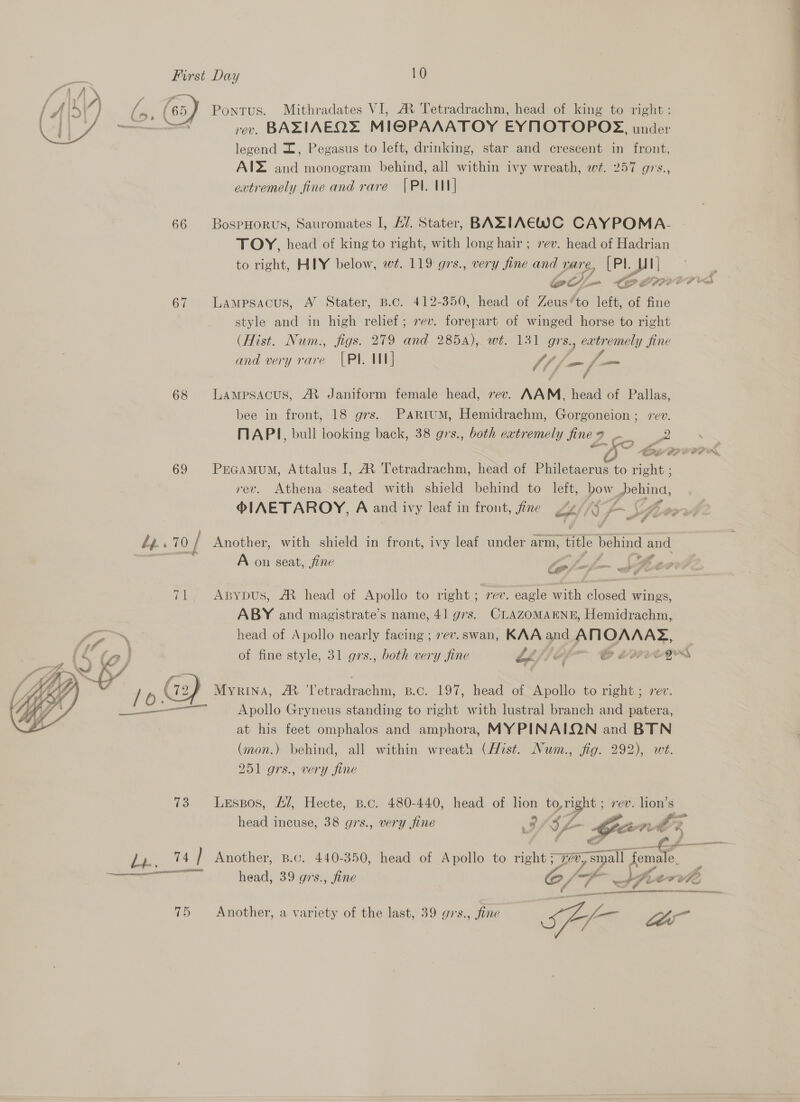 First Day 10
(65) Pontus. Mithradates VI, Æ Tetradrachm, head of king to right :
rev. ΒΑΣΙΛΕΩΣ ΜΙΘΡΑΔΑΤΟΥ ΕΥΠΟΤΟΡΟΣ, under
legend Ξ, Pegasus to left, drinking, star and crescent in front,
ΑΙΣ and monogram behind, all within ivy wreath, wt. 257 grs.,
extremely fine and rare [Pl. III]
66 Bosphorus, Sauromates I, El. Stater, ΒΑΣΙΛЄWC CΑΥΡΟΜΑ-
ΤΟΥ, head of king to right, with long hair ; rev. head of Hadrian
to right, ΗΙΥ below, wt. 119 grs., very fine and rare, [Pl. III]
67 Lampsacus, N Stater, B.C. 412-350, head of Zeus to left, of fine
style and in high relief; rev. forepart of winged horse to right
(Hist. Num., figs. 279 and 285A), wt. 131 grs., extremely fine
and very rare [Pl. III]
68 Lampsacus, Æ Janiform female head, rev. ΛΑΜ, head of Pallas,
bee in front, 18 grs. Parium, Hemidrachm, Gorgoneion ; rev.
ΠΑΡΙ, bull looking back, 38 grs., both extremely fine 2
69 Pergamum, Attalus I, Æ Tetradrachm, head of Philetaerus to right ;
rev. Athena seated with shield behind to left, bow behind,
ΦΙΛΕΤΑΡΟΥ, A and ivy leaf in front, fine
70 Another, with shield in front, ivy leaf under arm, title behind and
A on seat, fine
71 Abydus, Æ head of Apollo to right ; rev. eagle with closed wings,
ΑΒΥ and magistrate's name, 41 grs. Clazomaene, Hemidrachm,
head of Apollo nearly facing ; rev. swan, ΚΛΑ and ΑΠΟΛΛΑΣ,
of fine style, 31 grs., both very fine
(72) Myrina, Æ Tetradrachm, B.C. 197, head of Apollo to right ; rev.
Apollo Gryneus standing to right with lustral branch and patera,
at his feet omphalos and amphora, ΜΥΡΙΝΑΙΩΝ and ΒΤΝ
(mon.) behind, all within wreath (Hist. Num., fig. 292), wt.
251 grs., very fine
73 Lesbos, El, Hecte, B.C. 480-440, head of lion to right ; rev. lion's
head incuse, 38 grs., very fine
74 Another, B.C. 440-350, head of Apollo to right ; rev. small female
head, 39 grs., fine
75 Another, a variety of the last, 39 grs., fine